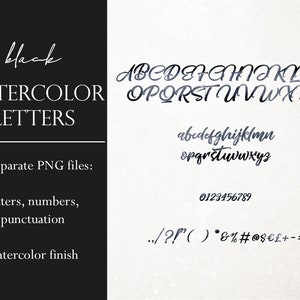 black
TERCOLOR
ETTERS
parate PNG files:
ters, numbers,
punctuation
tercolor finish
ABCDEFGHIJKL
OPQRSTUVWX
abcdefghijklmn
opqrstuvwxyz
0123456789
../?!"( ) *&%#@$€£+-